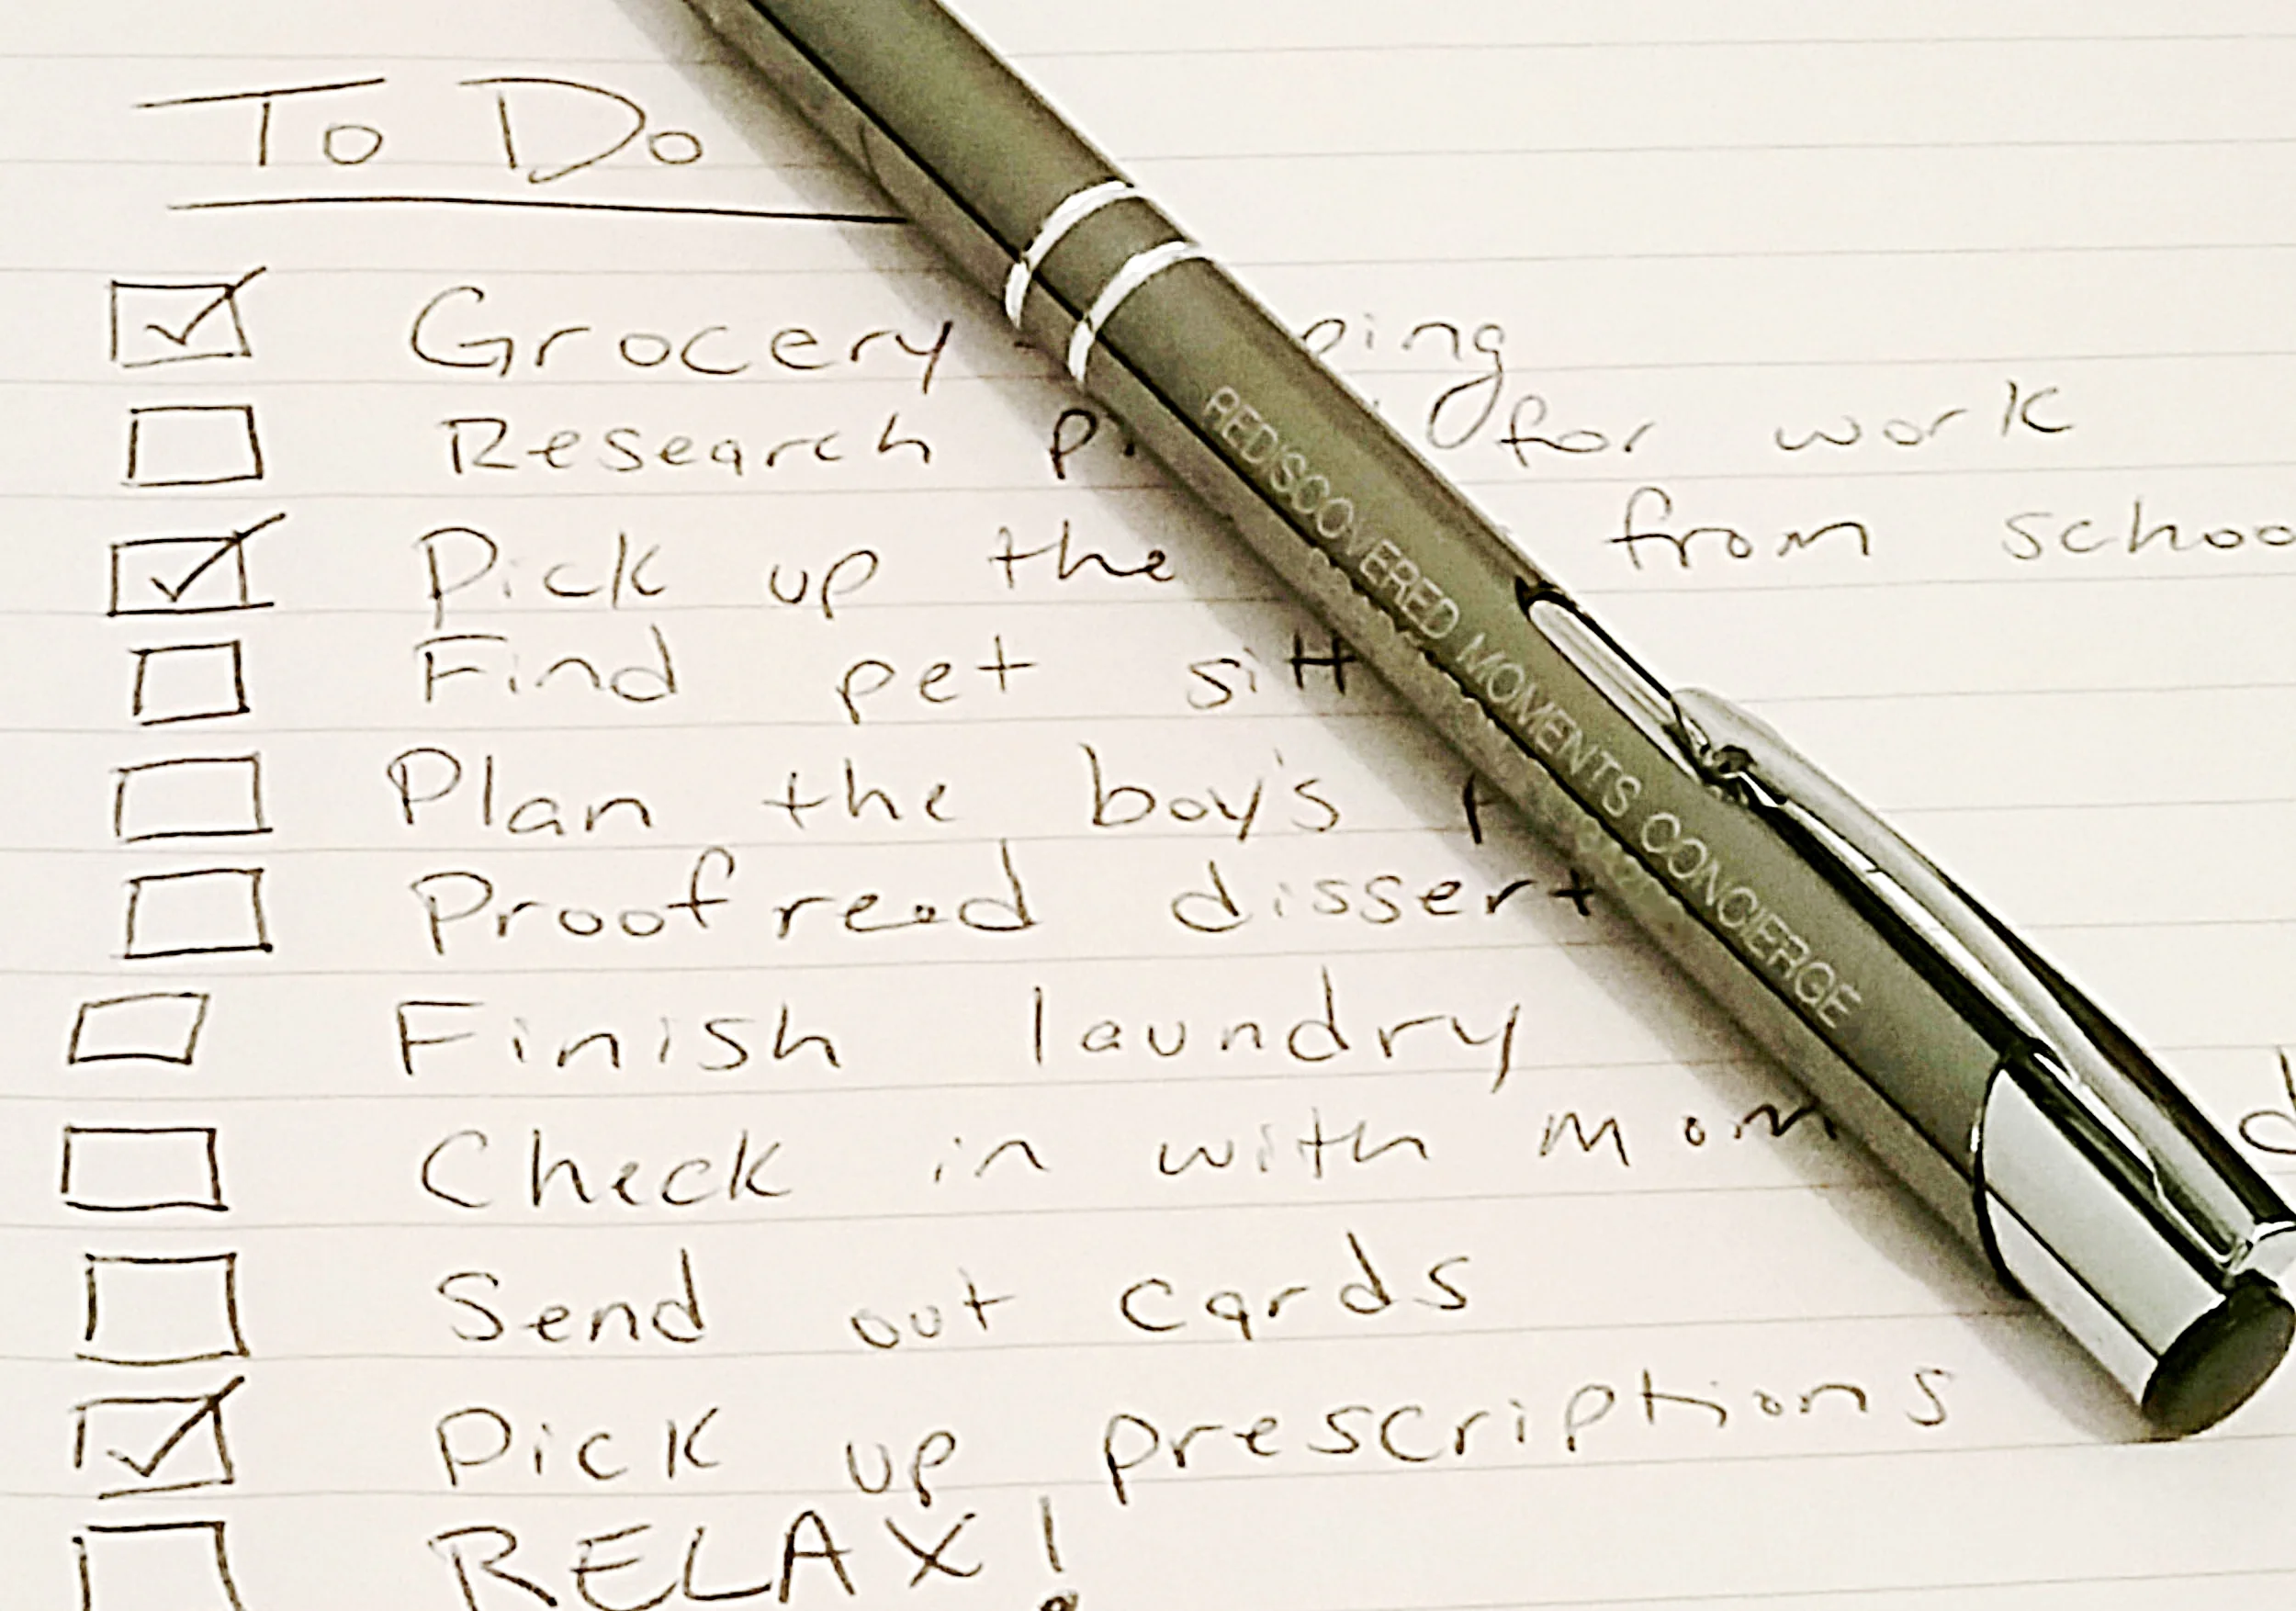 To Do
Grocery
Research for work
Pick up the from
Find pet
Plan the boy's
Proofread
Finish laundry
Check in with mom
Send out cards
Pick up prescriptions
RELAX!
REDISCOVERED MOMENTS CONCIERGE